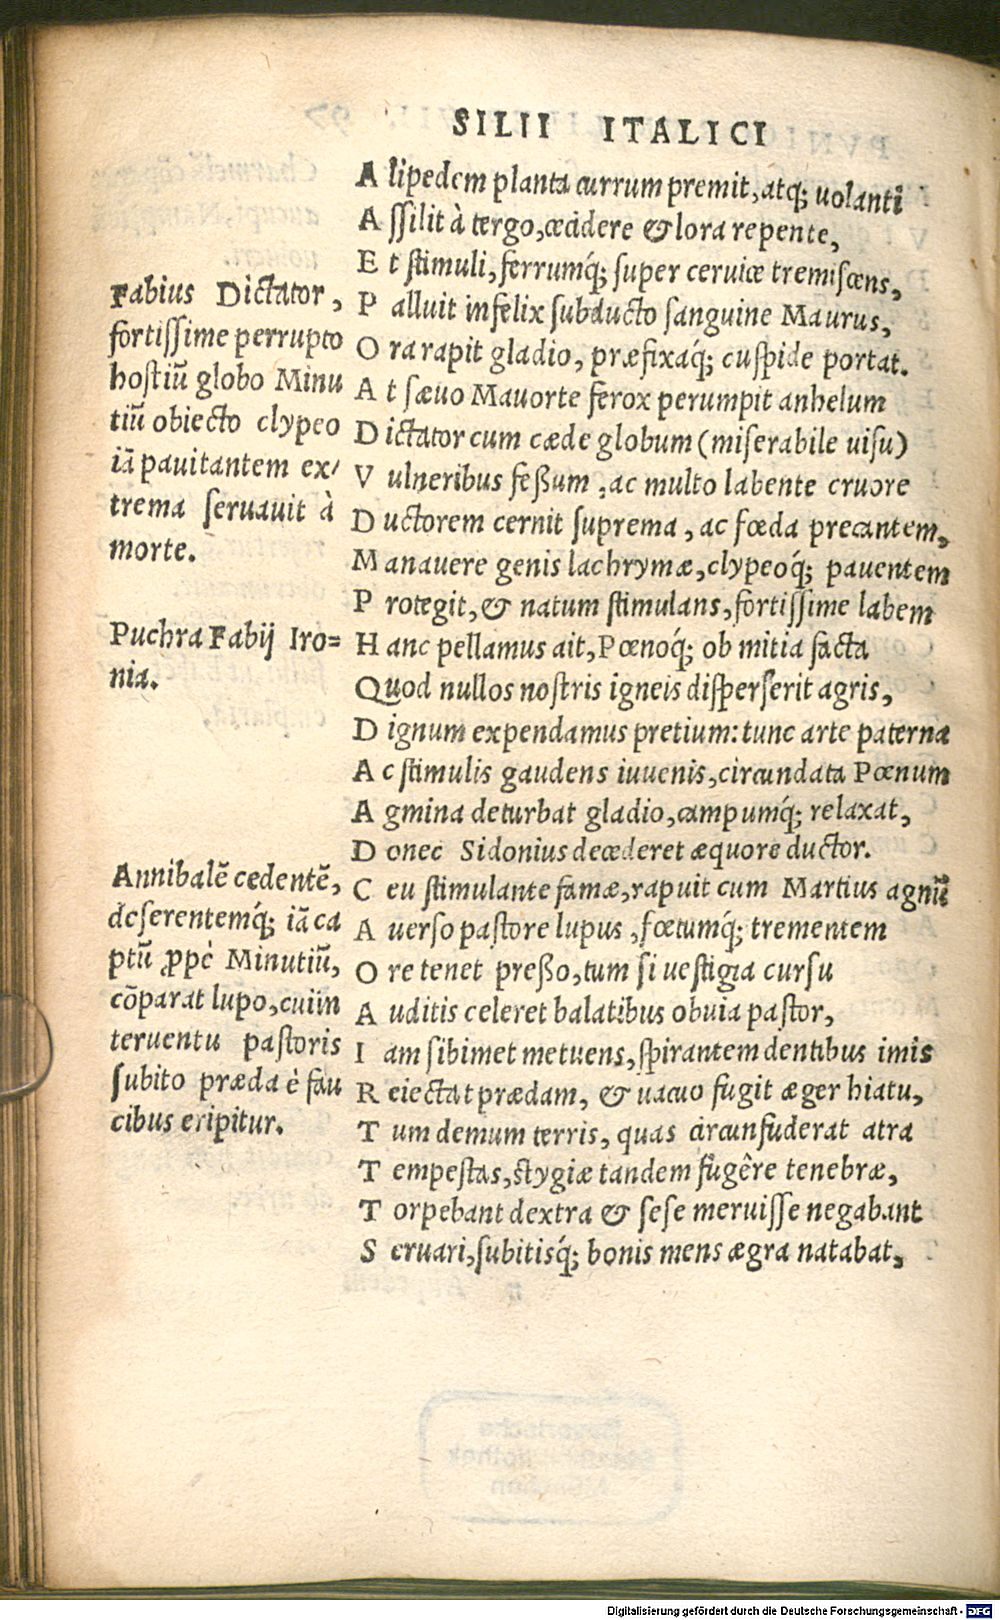 SILII ITALICI
A lipedem planta currum premit, atq; uolanti
A ſſilit à tergo, cecidere & lora repente,
E t ſtimuli, ferrumq́; ſuper ceruice tremiſcens,
P alluit infelix ſubducto ſanguine Maurus,
O ra rapit gladio, præfixaq́; cuſpide portat.
A t ſæuo Mauorte ferox perumpit anhelum
D ictator cum cæde globum (miſerabile uiſu)
V ulneribus feßum, ac multo labente cruore
D uctorem cernit ſuprema, ac fœda precantem,
M anauere genis lachrymæ, clypeoq́; pauentem
P rotegit, & natum ſtimulans, fortiſſime labem
H anc pellamus ait, Pœnoq́; ob mitia facta
Quod nullos noſtris igneis diſperſerit agris,
D ignum expendamus pretium: tunc arte paterna
A c ſtimulis gaudens iuuenis, circundata Pœnum
A gmina deturbat gladio, campumq́; relaxat,
D onec Sidonius decederet æquore ductor.
C eu ſtimulante famæ, rapuit cum Martius agnũ
A uerſo paſtore lupus, fœtumq́; trementem
O re tenet preßo, tum ſi ueſtigia curſu
A uditis celeret balatibus obuia paſtor,
I am ſibimet metuens, ſpirantem dentibus imis
R eiectat prædam, & uacuo fugit æger hiatu,
T um demum terris, quas circunfuderat atra
T empeſtas, ſtygiæ tandem fûgêre tenebræ,
T orpebant dextra & ſeſe meruiſſe negabant
S eruari, ſubitisq́; bonis mens ægra natabat,
Fabius Dictator,
fortiſſime perrupto
hoſtiũ globo Minu
tiũ obiecto clypeo
iã pauitantem ex/
trema ſeruauit à
morte.
Puchra Fabij Iro=
nia.
Annibalẽ cedentẽ,
deſerentemq́; iã ca
ptũ ꝓpè Minutiũ,
cõparat lupo, cui in
teruentu paſtoris
ſubito præda è fau
cibus eripitur.
Digitalisierung gefördert durch die Deutsche Forschungsgemeinschaft - DFG